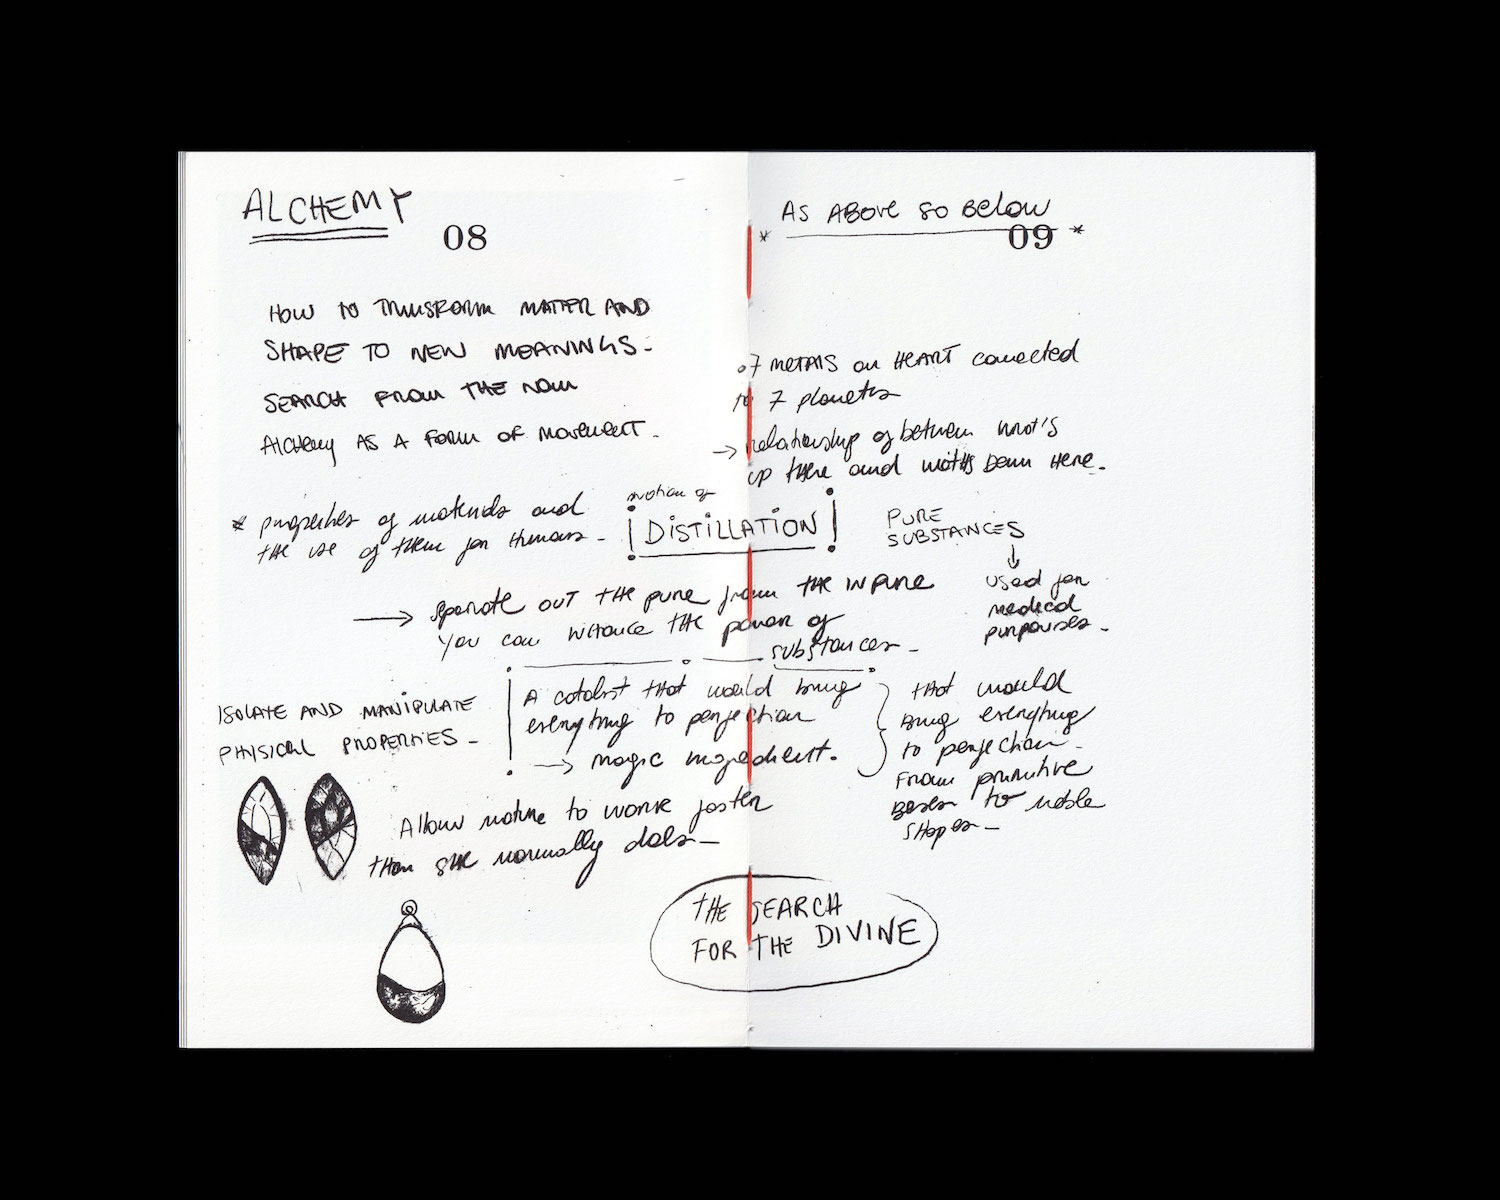 ALCHEMY
08
HOW TO TRANSFORM MATTER AND
SHAPE TO NEW MEANINGS-
SEARCH FROM THE NOW
AlCHEmy AS A FORM OF MOVEMENT.
* properties of materials and
the use of them for Humans -
notion of
DISTILLATION
→ separate OUT THE pure from THE INPURE
You can THE power of
substances -
ISOLATE AND MANIPULATE
PHYSICAL PROPERTIES -
A catalist THAT would bring
everything to perfection
→ magic ingredient.
Allow nature to work faster
than SHE normally does -
THE SEARCH
FOR THE DIVINE
AS ABOVE SO BELOW
* 09 *
7 METALS on HEART connected
to 7 planets
→ relationship of between what's
up there and down HERE.
PURE
SUBSTANCES
↓
used for
medical
purpouses -
THAT would
bring everything
to perfection -
FROM primitive
Bases to noble
SHapes -